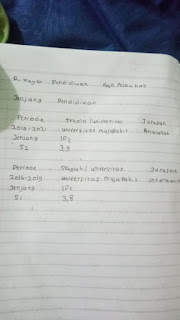 Pendidikan
Jenjang Pendidikan
Periode Sekolah/universitas Jurusan
2019-2021 universitas majapahit
Jenjang IPK
S2 3.9
Periode Sekolah/universitas Jurusan
2016-2019 universitas majapahit
Jenjang IPK
S1 3,8